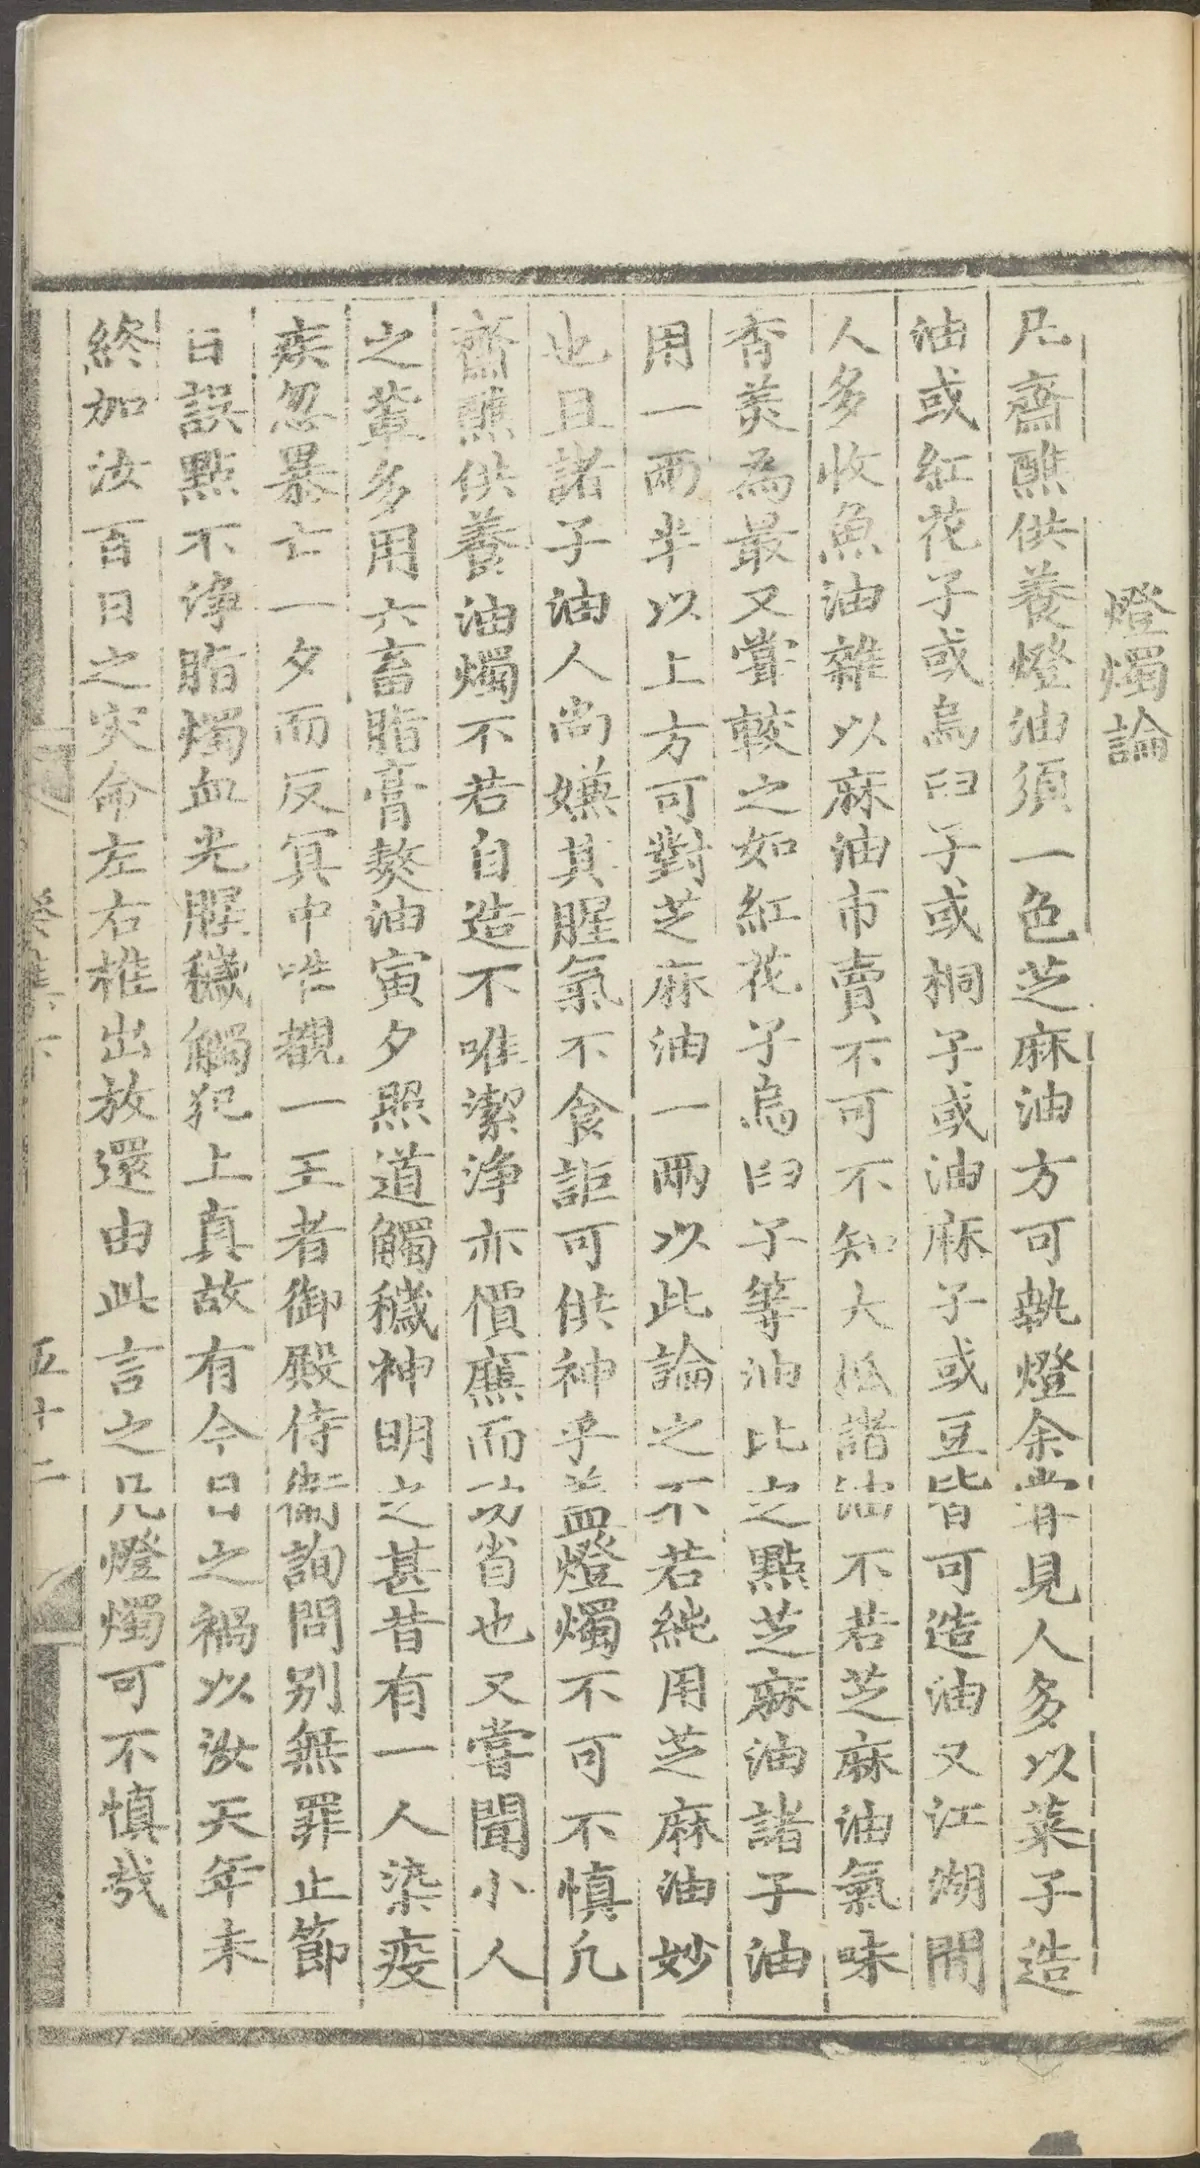 燈燭論
凡齋醮供養燈油須一色芝麻油方可執燈余嘗見人多以菜子造
油或紅花子或烏臼子或桐子或油麻子或豆皆可造油又江湖間
人多收魚油雜以麻油市賣不可不知大抵諸油不若芝麻油氣味
香羙為最又嘗較之如紅花子烏臼子等油比之點芝麻油諸子油
用一兩半以上方可對芝麻油一兩以此論之不若純用芝麻油妙
也且諸子油人尚嫌其腥氣不食詎可供神乎盖燈燭不可不慎凡
齋醮供養油燭不若自造不唯潔淨亦價廉而功省也又嘗聞小人
之輩多用六畜脂膏熬油寅夕照道觸穢神明之甚昔有一人染疫
疾忽暴亡一夕而反冥中唯覩一王者御殿侍衛詢問別無罪止節
日誤點不淨脂燭血光腥穢觸犯上真故有今日之禍以汝天年未
終加汝百日之灾命左右推出放還由此言之凡燈燭可不慎哉
五十二